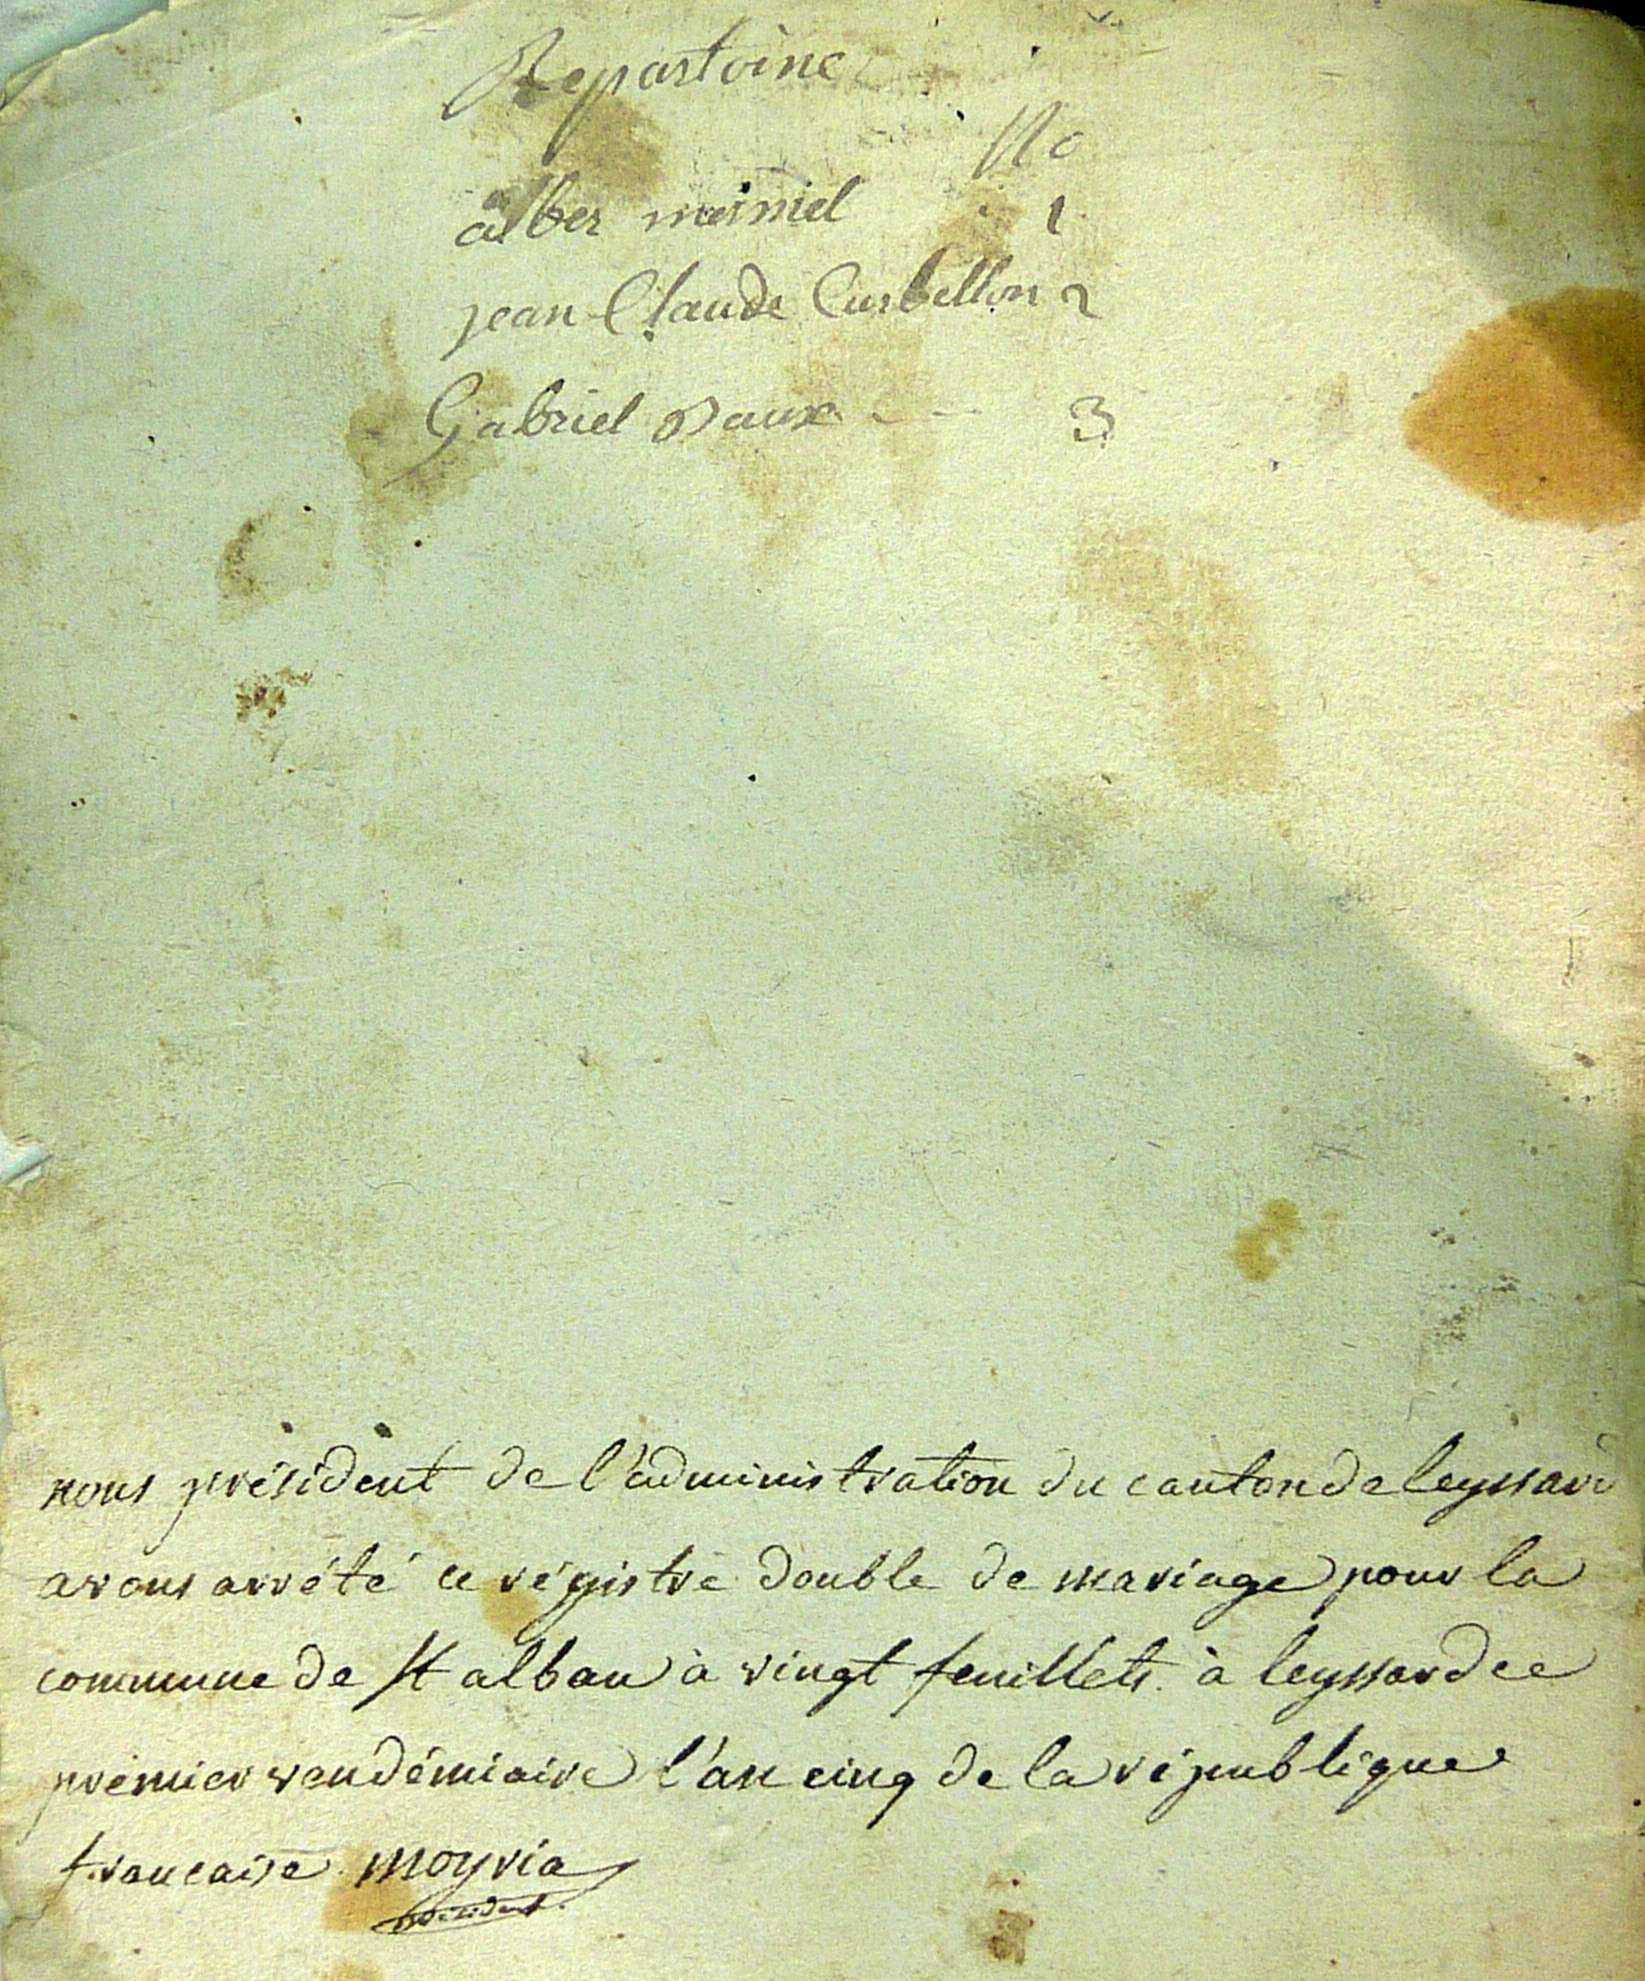 Repartoine
No
alber meiniel 1
jean Claude Curbellon 2
Gabriel Vaux - - 3
nous président de l'administration du canton de leyssard
avons arrété ce régistre double de mariage pour la
commune de St alban à vingt feuillets. à leyssard ce
premier vendémiaire l'an cinq de la république
francaise. moyria
président.